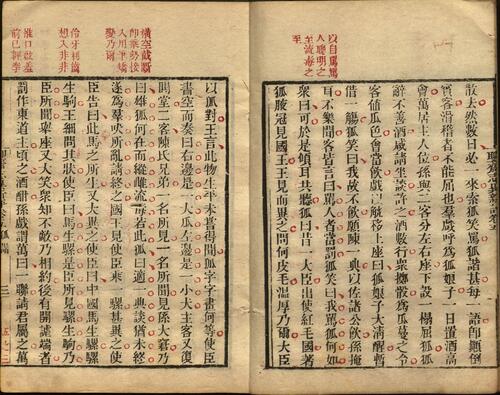 以自罵罵
人聰明之
至流毒之
至
散去然數日必一來索狐笑罵狐諧甚每一語即顛倒
賓客滑稽者不能屈也羣戲呼為狐娘子一日置酒高
會萬居主人位孫與二客分左右座下設一榻屈狐狐
辭不善酒咸請坐談許之酒數行眾擲骰為瓜蔓之令
客值瓜色會當飲戲以觥移上座曰狐娘子大清醒暫
借一觴狐笑曰我故不飲願陳一典以佐諸公飲孫掩
耳不樂聞客皆言曰罵人者當罰狐笑曰我罵狐何如
眾曰可於是傾耳共聽狐曰昔一大臣出使紅毛國著
狐腋冠見國王王見而異之問何皮毛溫厚乃爾大臣
橫空
用筆矯
變乃爾
伶牙利齒
想入非非
口啟羞
以狐對王言此物生平未嘗得聞狐字字畫何等使臣
書空而奏曰右邊是一大瓜左邊是一小犬主客又復
鬨堂二客陳氏兄弟一名所見一名所聞見孫大窘乃
曰雄狐何在而縱雌流毒若此狐曰適一典談猶未終
遂為羣吠所亂請終之國王見使臣乘一騾甚異之使
臣告曰此馬之所生又大異之使臣曰中國馬生騾騾
生駒王細問其狀使臣曰馬生騾是臣所見騾生駒乃
臣所聞舉座又大笑眾知不敵乃相約後有開謔端者
罰作東道主頃之酒酣孫戲謂萬曰一聯請君屬之萬